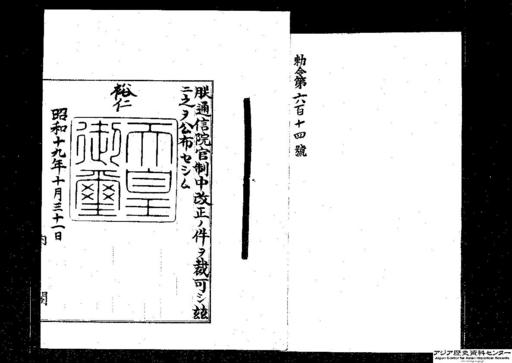 勅令第六百十四號
朕通信院官制中改正ノ件ヲ裁可シ茲
ニ之ヲ公布セシム
裕仁
天皇
御璽
昭和十九年十月三十一日
内閣
アジア歴史資料センター
Japan Center for Asian Historical Records